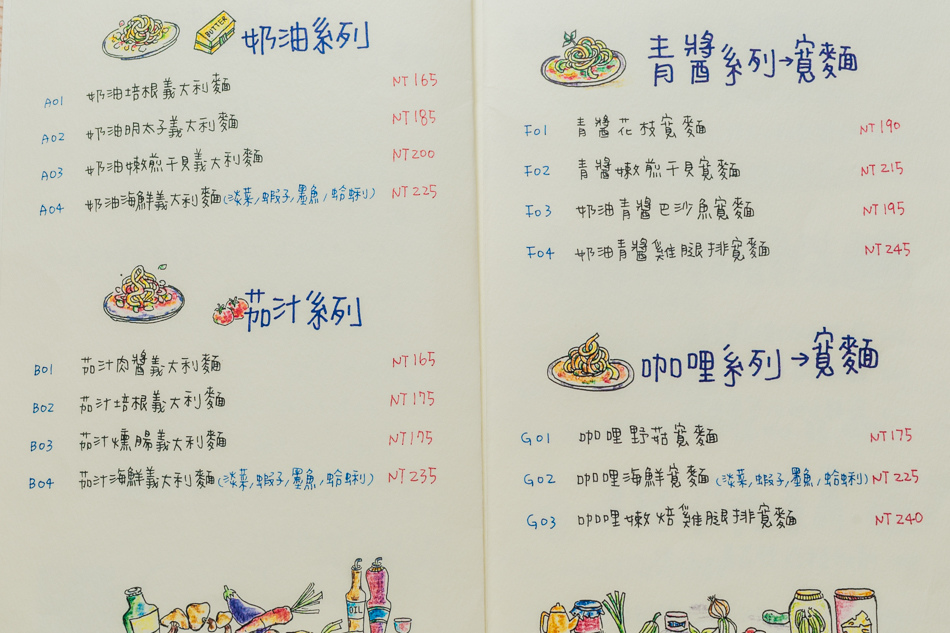 BUTTER
奶油系列
A01 奶油培根義大利麵 NT 165
A02 奶油明太子義大利麵 NT 185
A03 奶油嫩煎干貝義大利麵 NT 200
A04 奶油海鮮義大利麵(淡菜,蝦子,墨魚,蛤蜊) NT 225
茄汁系列
B01 茄汁肉醬義大利麵 NT 165
B02 茄汁培根義大利麵 NT 175
B03 茄汁燻腸義大利麵 NT 175
B04 茄汁海鮮義大利麵(淡菜,蝦子,墨魚,蛤蜊) NT 235
OIL
青醬系列→寬麵
F01 青醬花枝寬麵 NT 190
F02 青醬嫩煎干貝寬麵 NT 215
F03 奶油青醬巴沙魚寬麵 NT 195
F04 奶油青醬雞腿排寬麵 NT 245
咖哩系列→寬麵
G01 咖哩野菇寬麵 NT 175
G02 咖哩海鮮寬麵(淡菜,蝦子,墨魚,蛤蜊) NT 225
G03 咖哩嫩焙雞腿排寬麵 NT 240